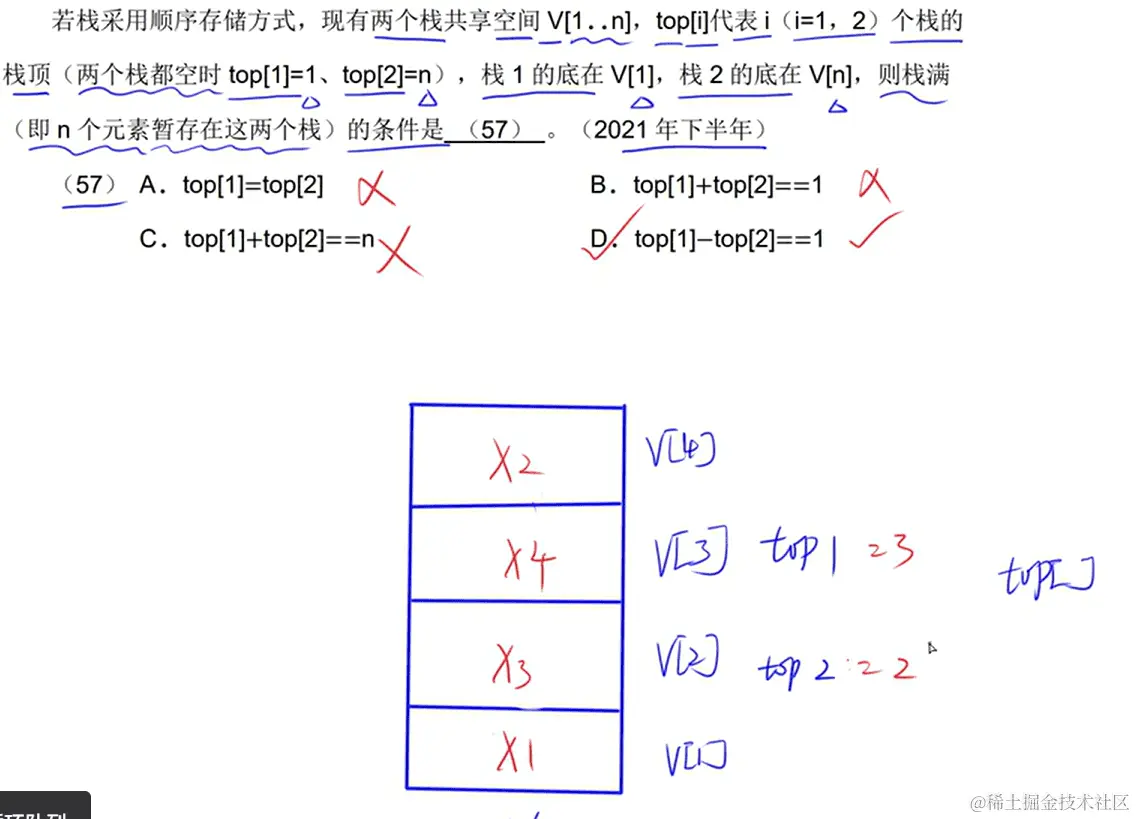 若栈采用顺序存储方式，现有两个栈共享空间 V[1..n]，top[i]代表 i（i=1，2）个栈的
栈顶（两个栈都空时 top[1]=1、top[2]=n），栈 1 的底在 V[1]，栈 2 的底在 V[n]，则栈满
（即 n 个元素暂存在这两个栈）的条件是 （57） 。（2021 年下半年）
（57） A．top[1]=top[2] B．top[1]+top[2]==1
C．top[1]+top[2]==n D．top[1]−top[2]==1
X2 V[4]
X4 V[3] top1 =3
top[]
X3 V[2] top2 =2
X1 V[1]
@稀土掘金技术社区